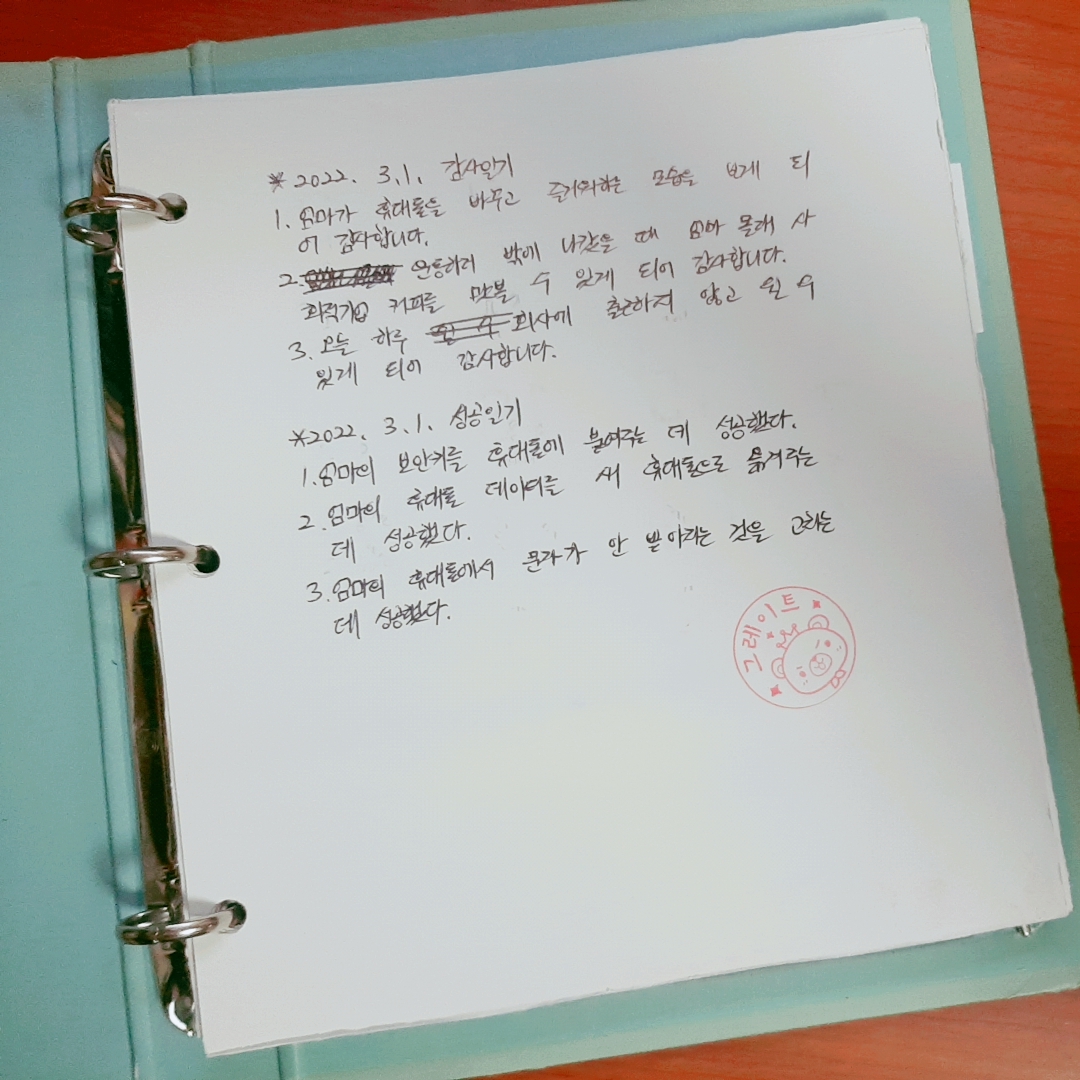 *2022. 3.1. 감사일기
1. 엄마가 휴대폰을 바꾸고 즐거워하는 모습을 보게 되
어 감사합니다.
2. 운동하러 밖에 나갔을 때 엄마 몰래 사
회적기업 커피를 맛볼 수 있게 되어 감사합니다.
3. 오늘 하루 회사에 출근하지 않고 쉴 수
있게 되어 감사합니다.
*2022. 3.1. 성공일기
1. 엄마의 보안키를 휴대폰에 붙여주는 데 성공했다.
2. 엄마의 휴대폰 데이터를 새 휴대폰으로 옮겨주는
데 성공했다.
3. 엄마의 휴대폰에서 문자가 안 받아지는 것을 고치는
데 성공했다.
그레이트